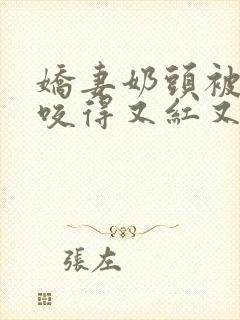 嬌妻奶頭被
咬得又紅又
張左